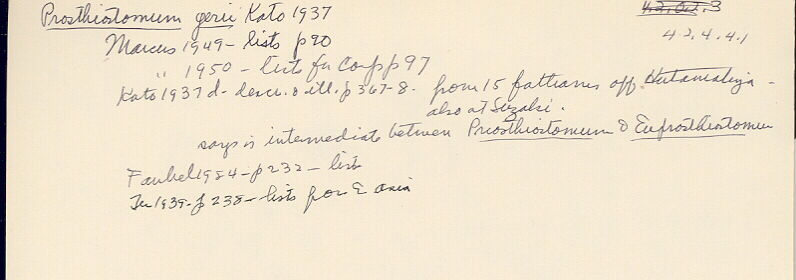 Prosthiostomum gerii Kato 1937
4.2.0.2.3
4.2.4.4.1
Marcus 1949 - lists p 90
" 1950 - lists for comp p 97
Kato 1937 d - descr. & ill. p 367-8. from 15 fathoms off
also at Suzaki.
says is intermediate between Prosthiostomum & Euprosthiostomum
Faubel 1984 - p 232 - lists
1939 - p 238 - lists for E asia